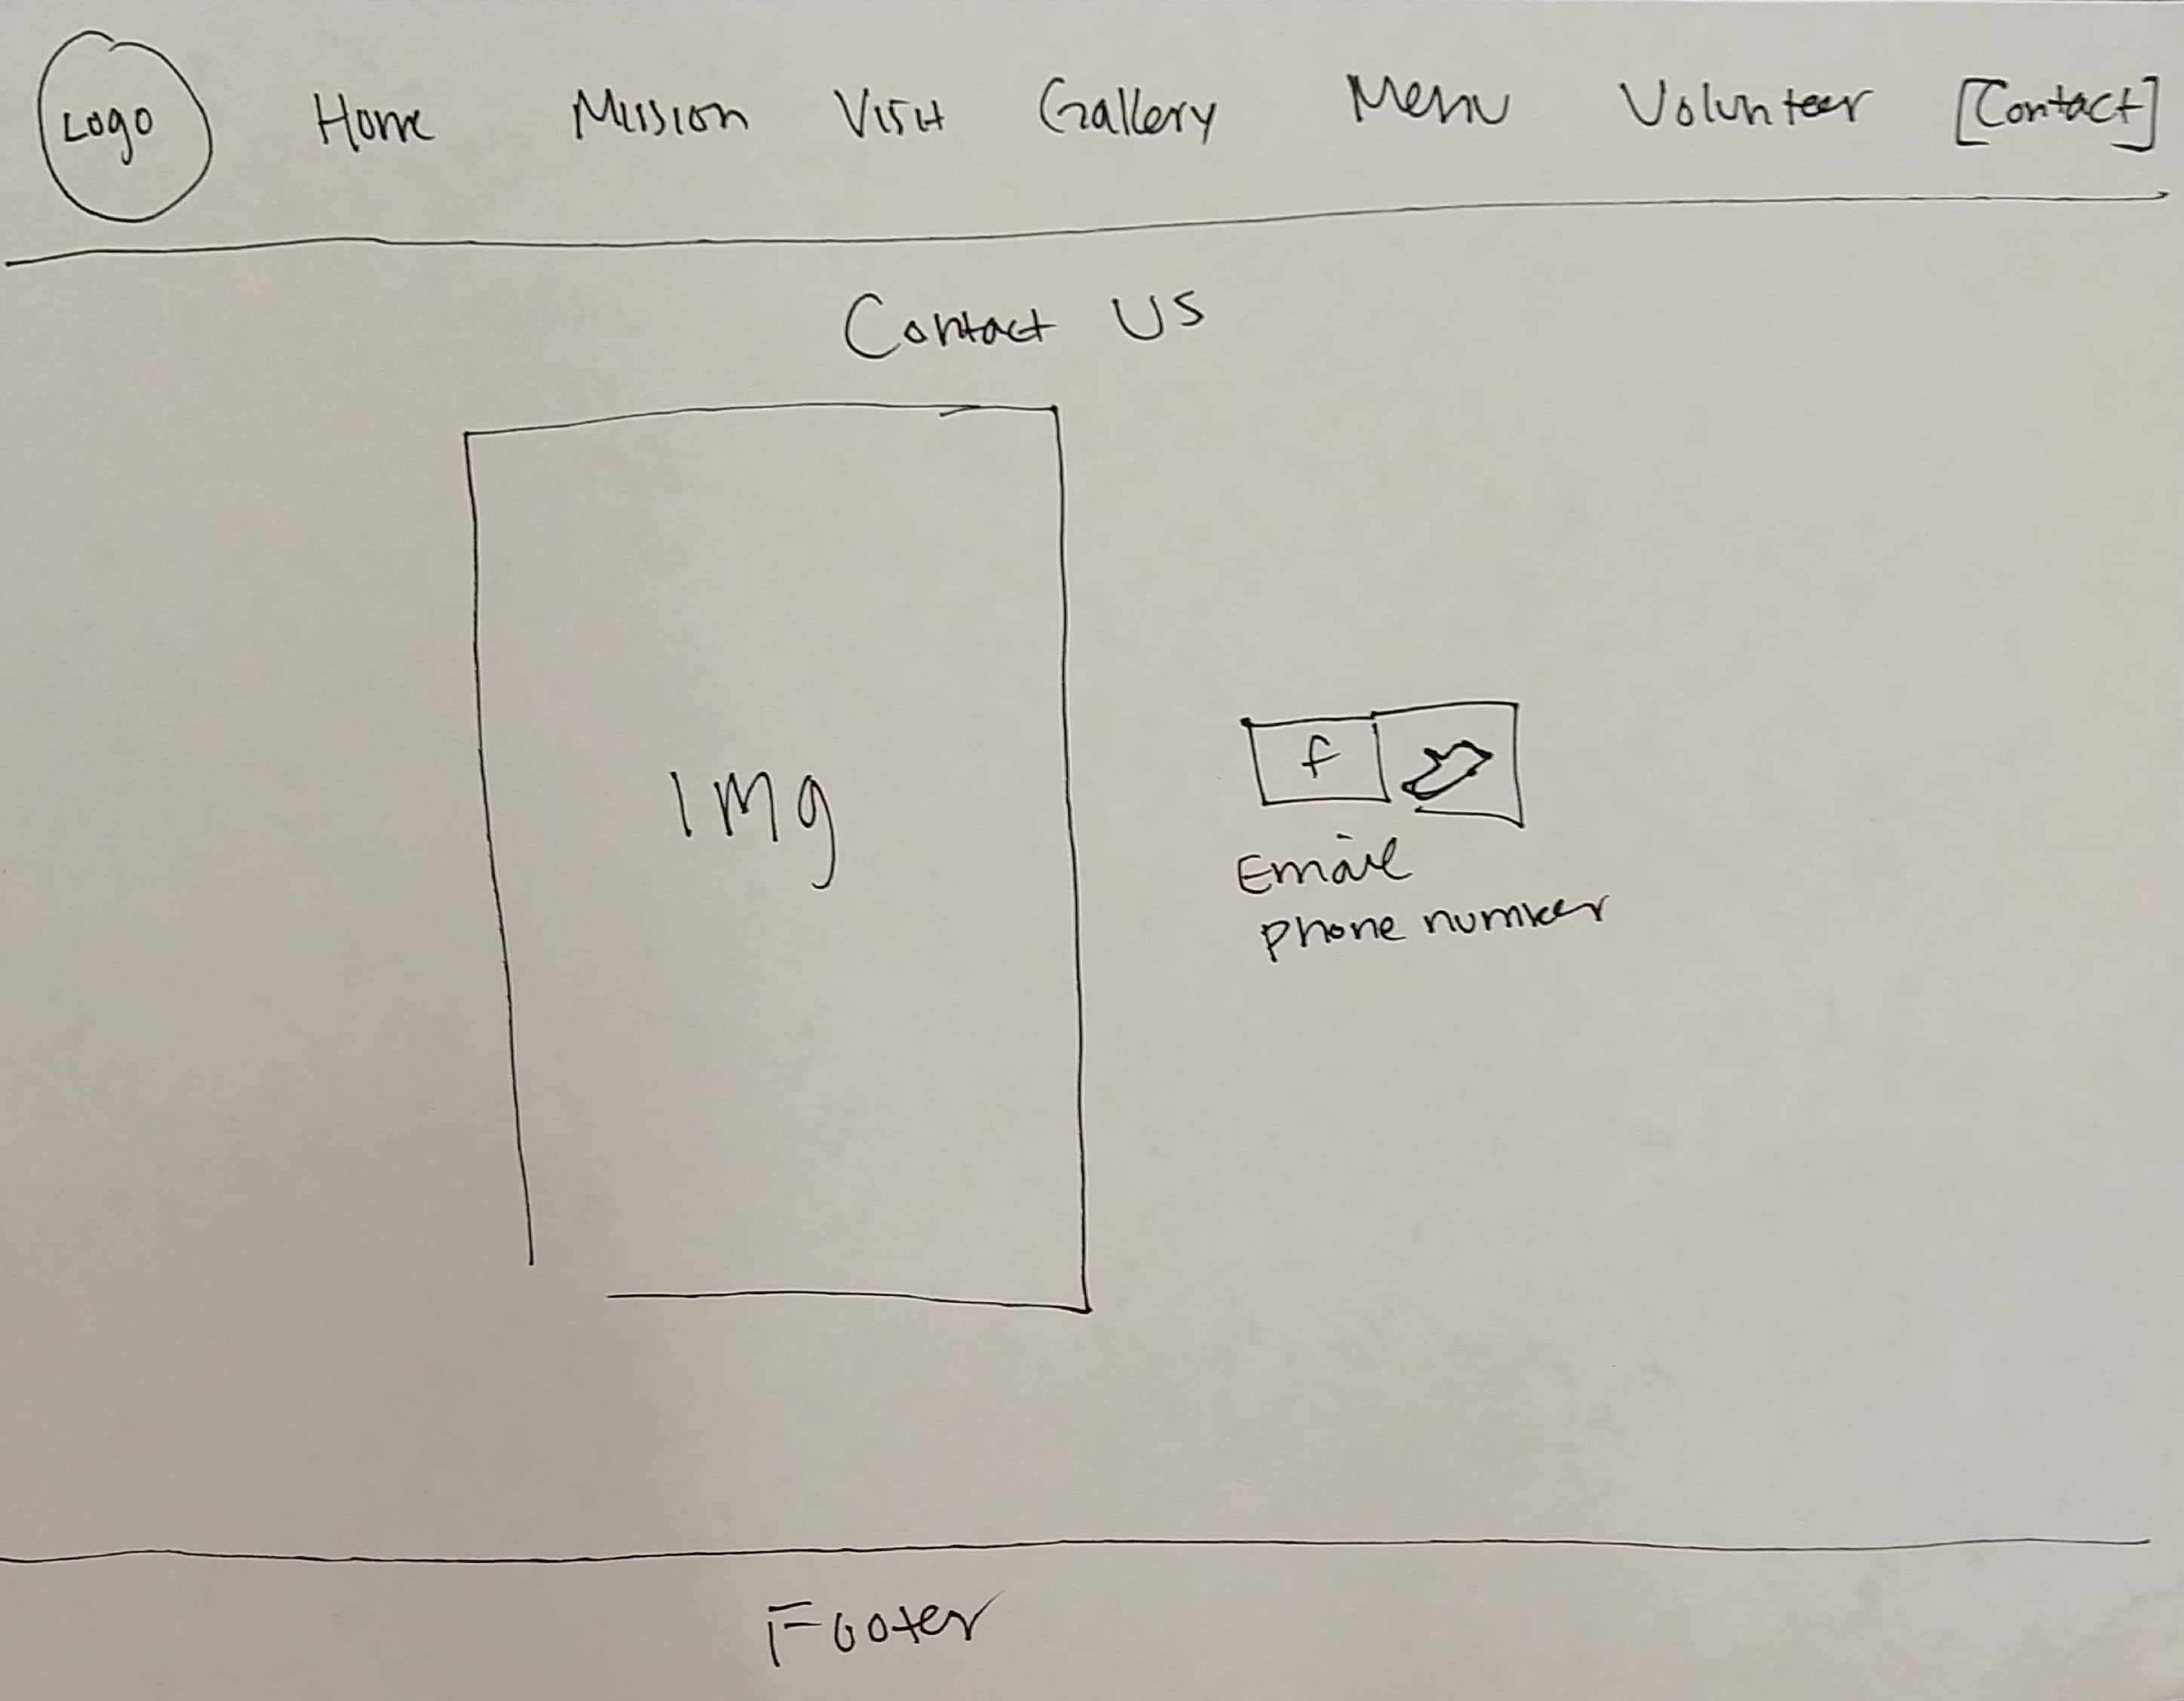 Logo Home Mission Visit Gallery Menu Volunteer [Contact]
Contact US
Img
f
Email
phone number
Footer